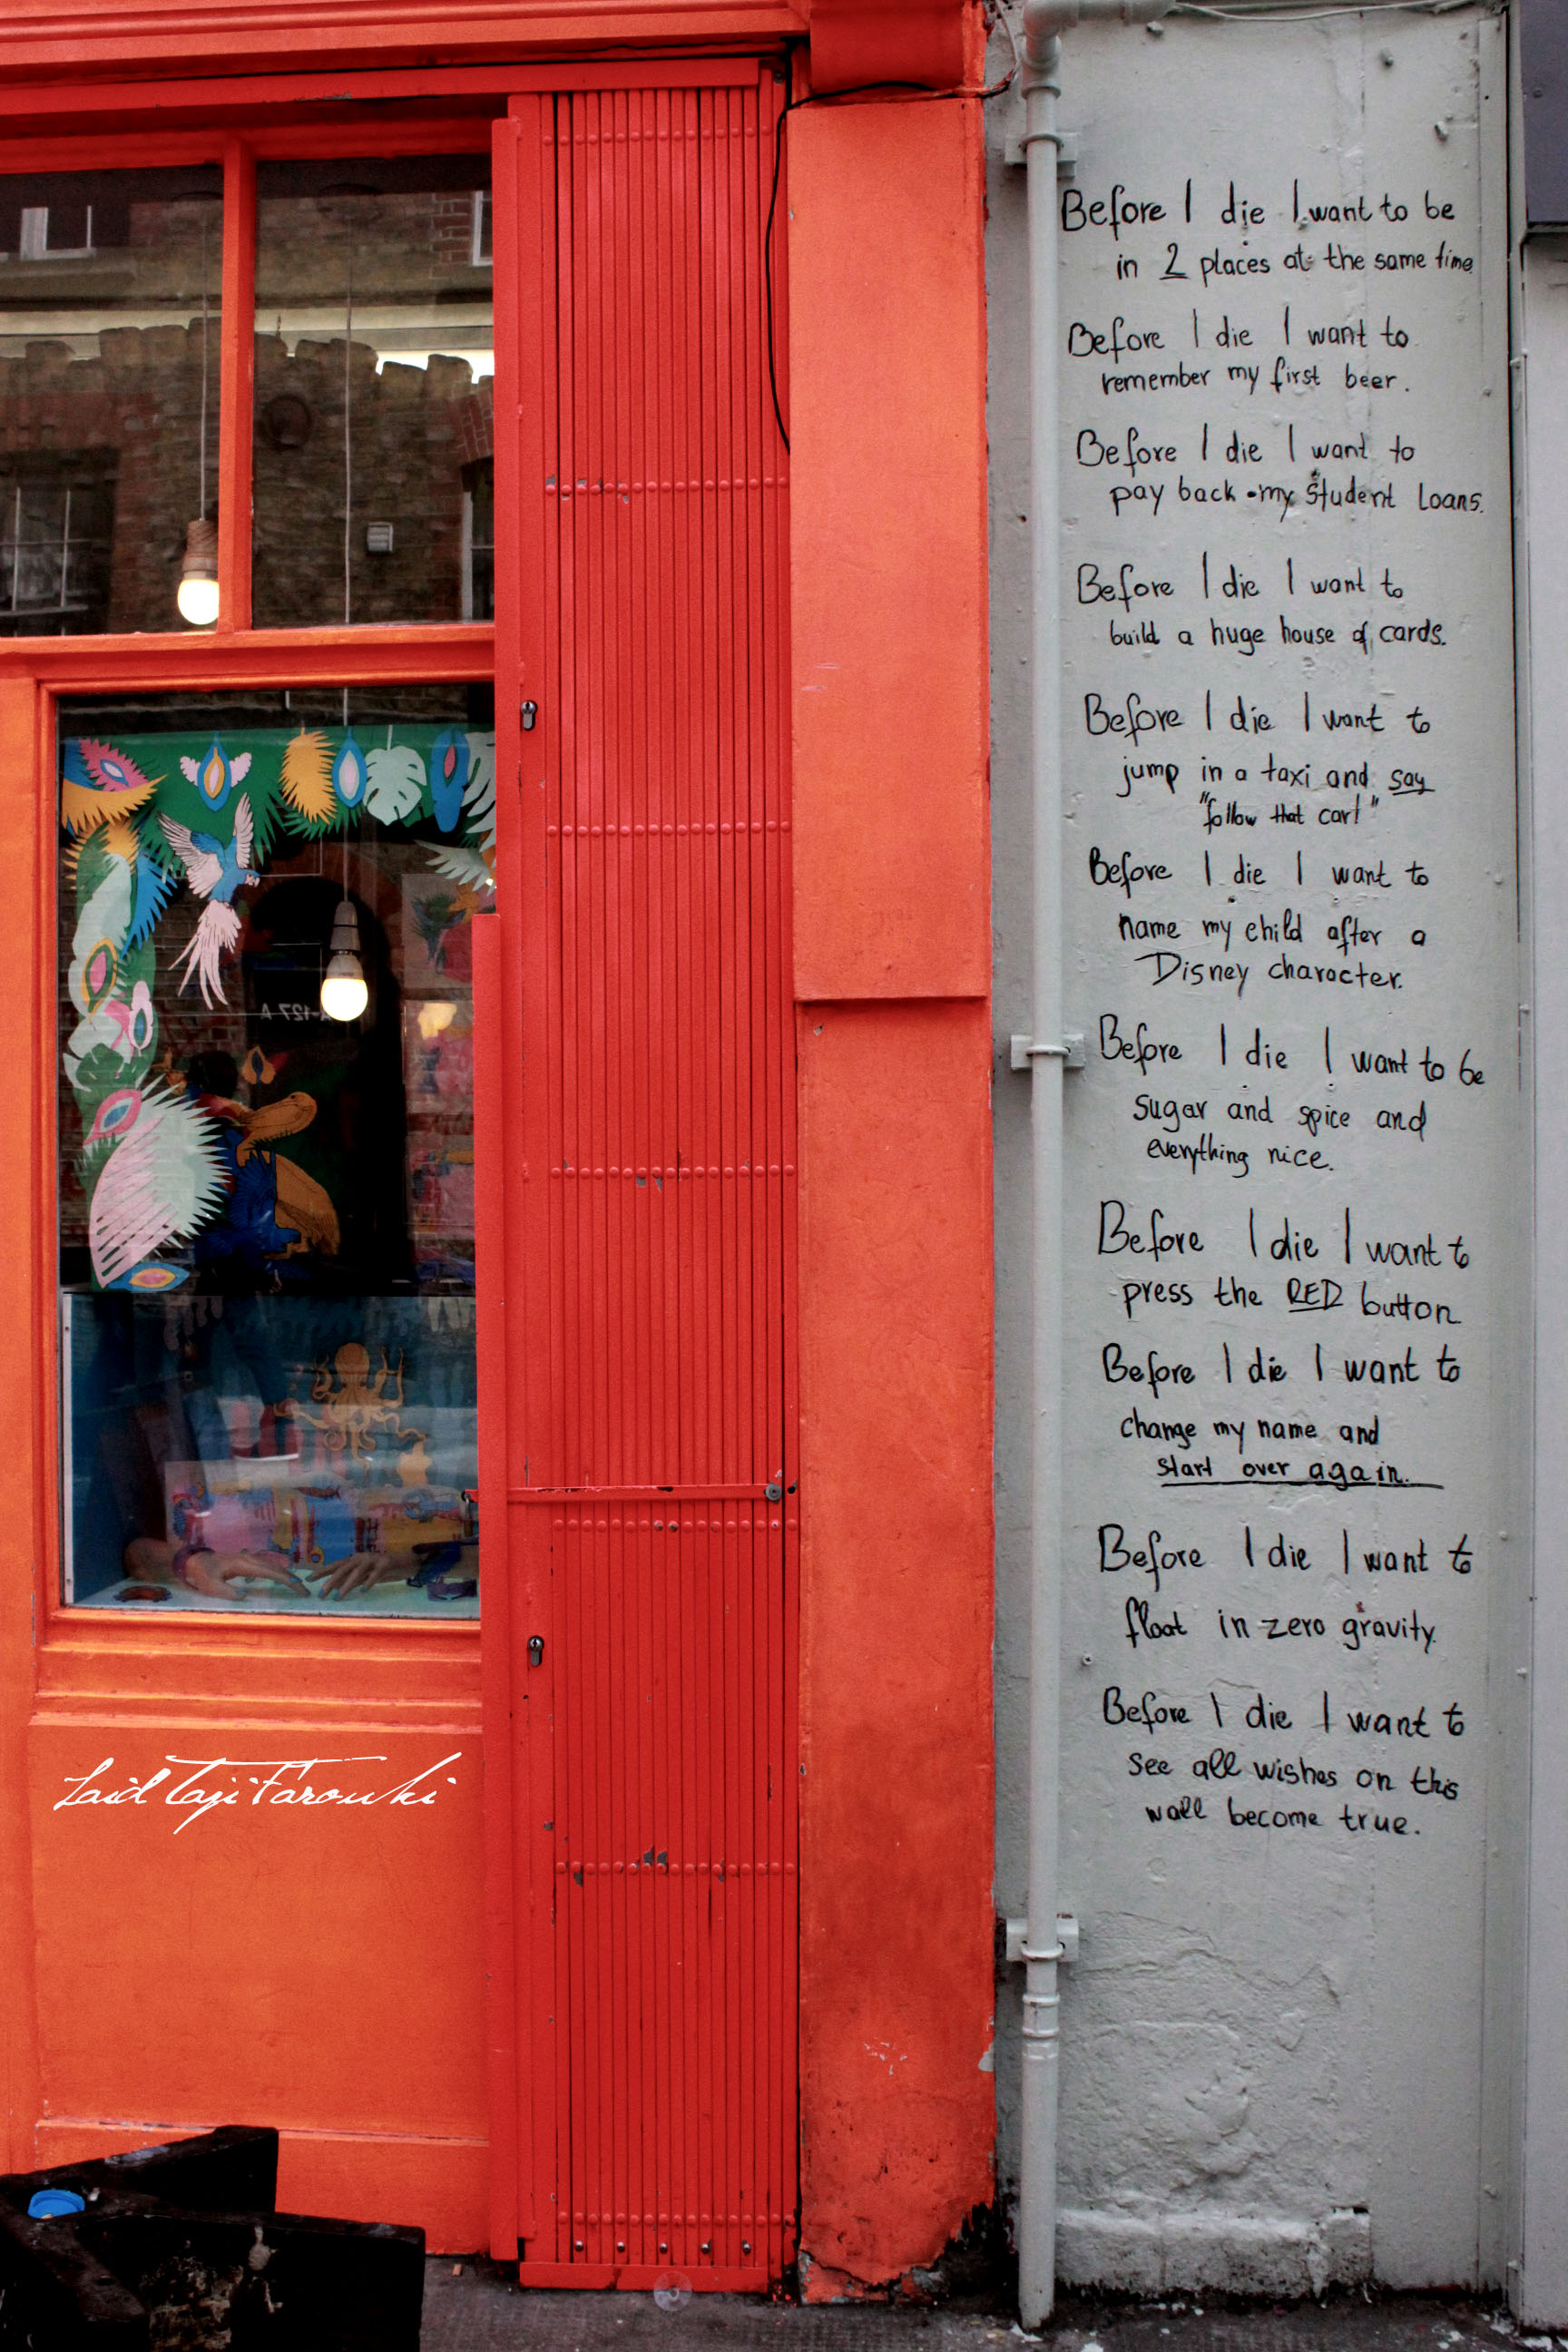 Before I die I want to be
in 2 places at the same time
Before I die I want to
remember my first beer.
Before I die I want to
pay back my student loans.
Before I die I want to
build a huge house of cards.
Before I die I want to
jump in a taxi and say
"follow that car!"
Before I die I want to
name my child after a
Disney character.
Before I die I want to be
sugar and spice and
everything nice.
Before I die I want to
press the RED button
Before I die I want to
change my name and
start over again.
Before I die I want to
float in zero gravity.
Before I die I want to
see all wishes on this
wall become true.
Laid Taji Farouki